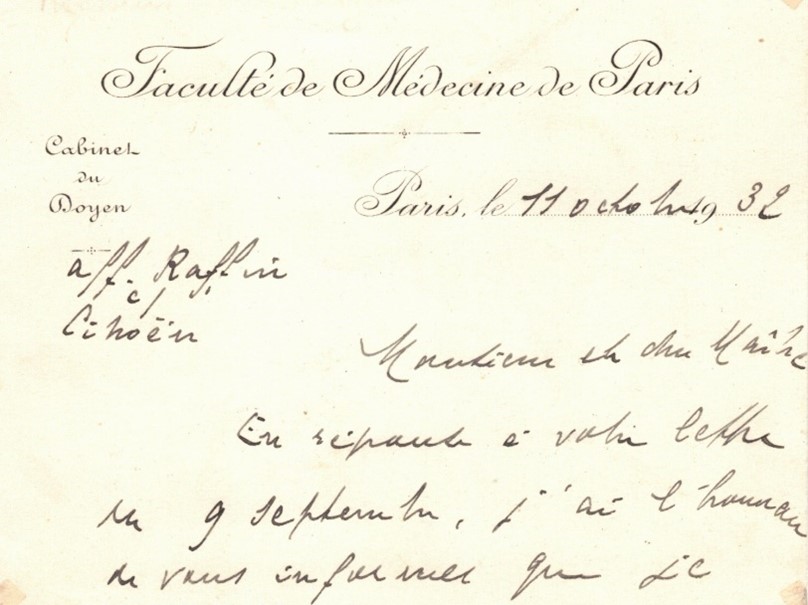 Faculté de Médecine de Paris
Cabinet
du
Doyen
Paris, le 11 octobre 1932
aff. Raflin
c/
Citroën
Monsieur et cher Maître
En réponse à votre lettre
du 9 septembre, j'ai l'honneur
de vous informer que je